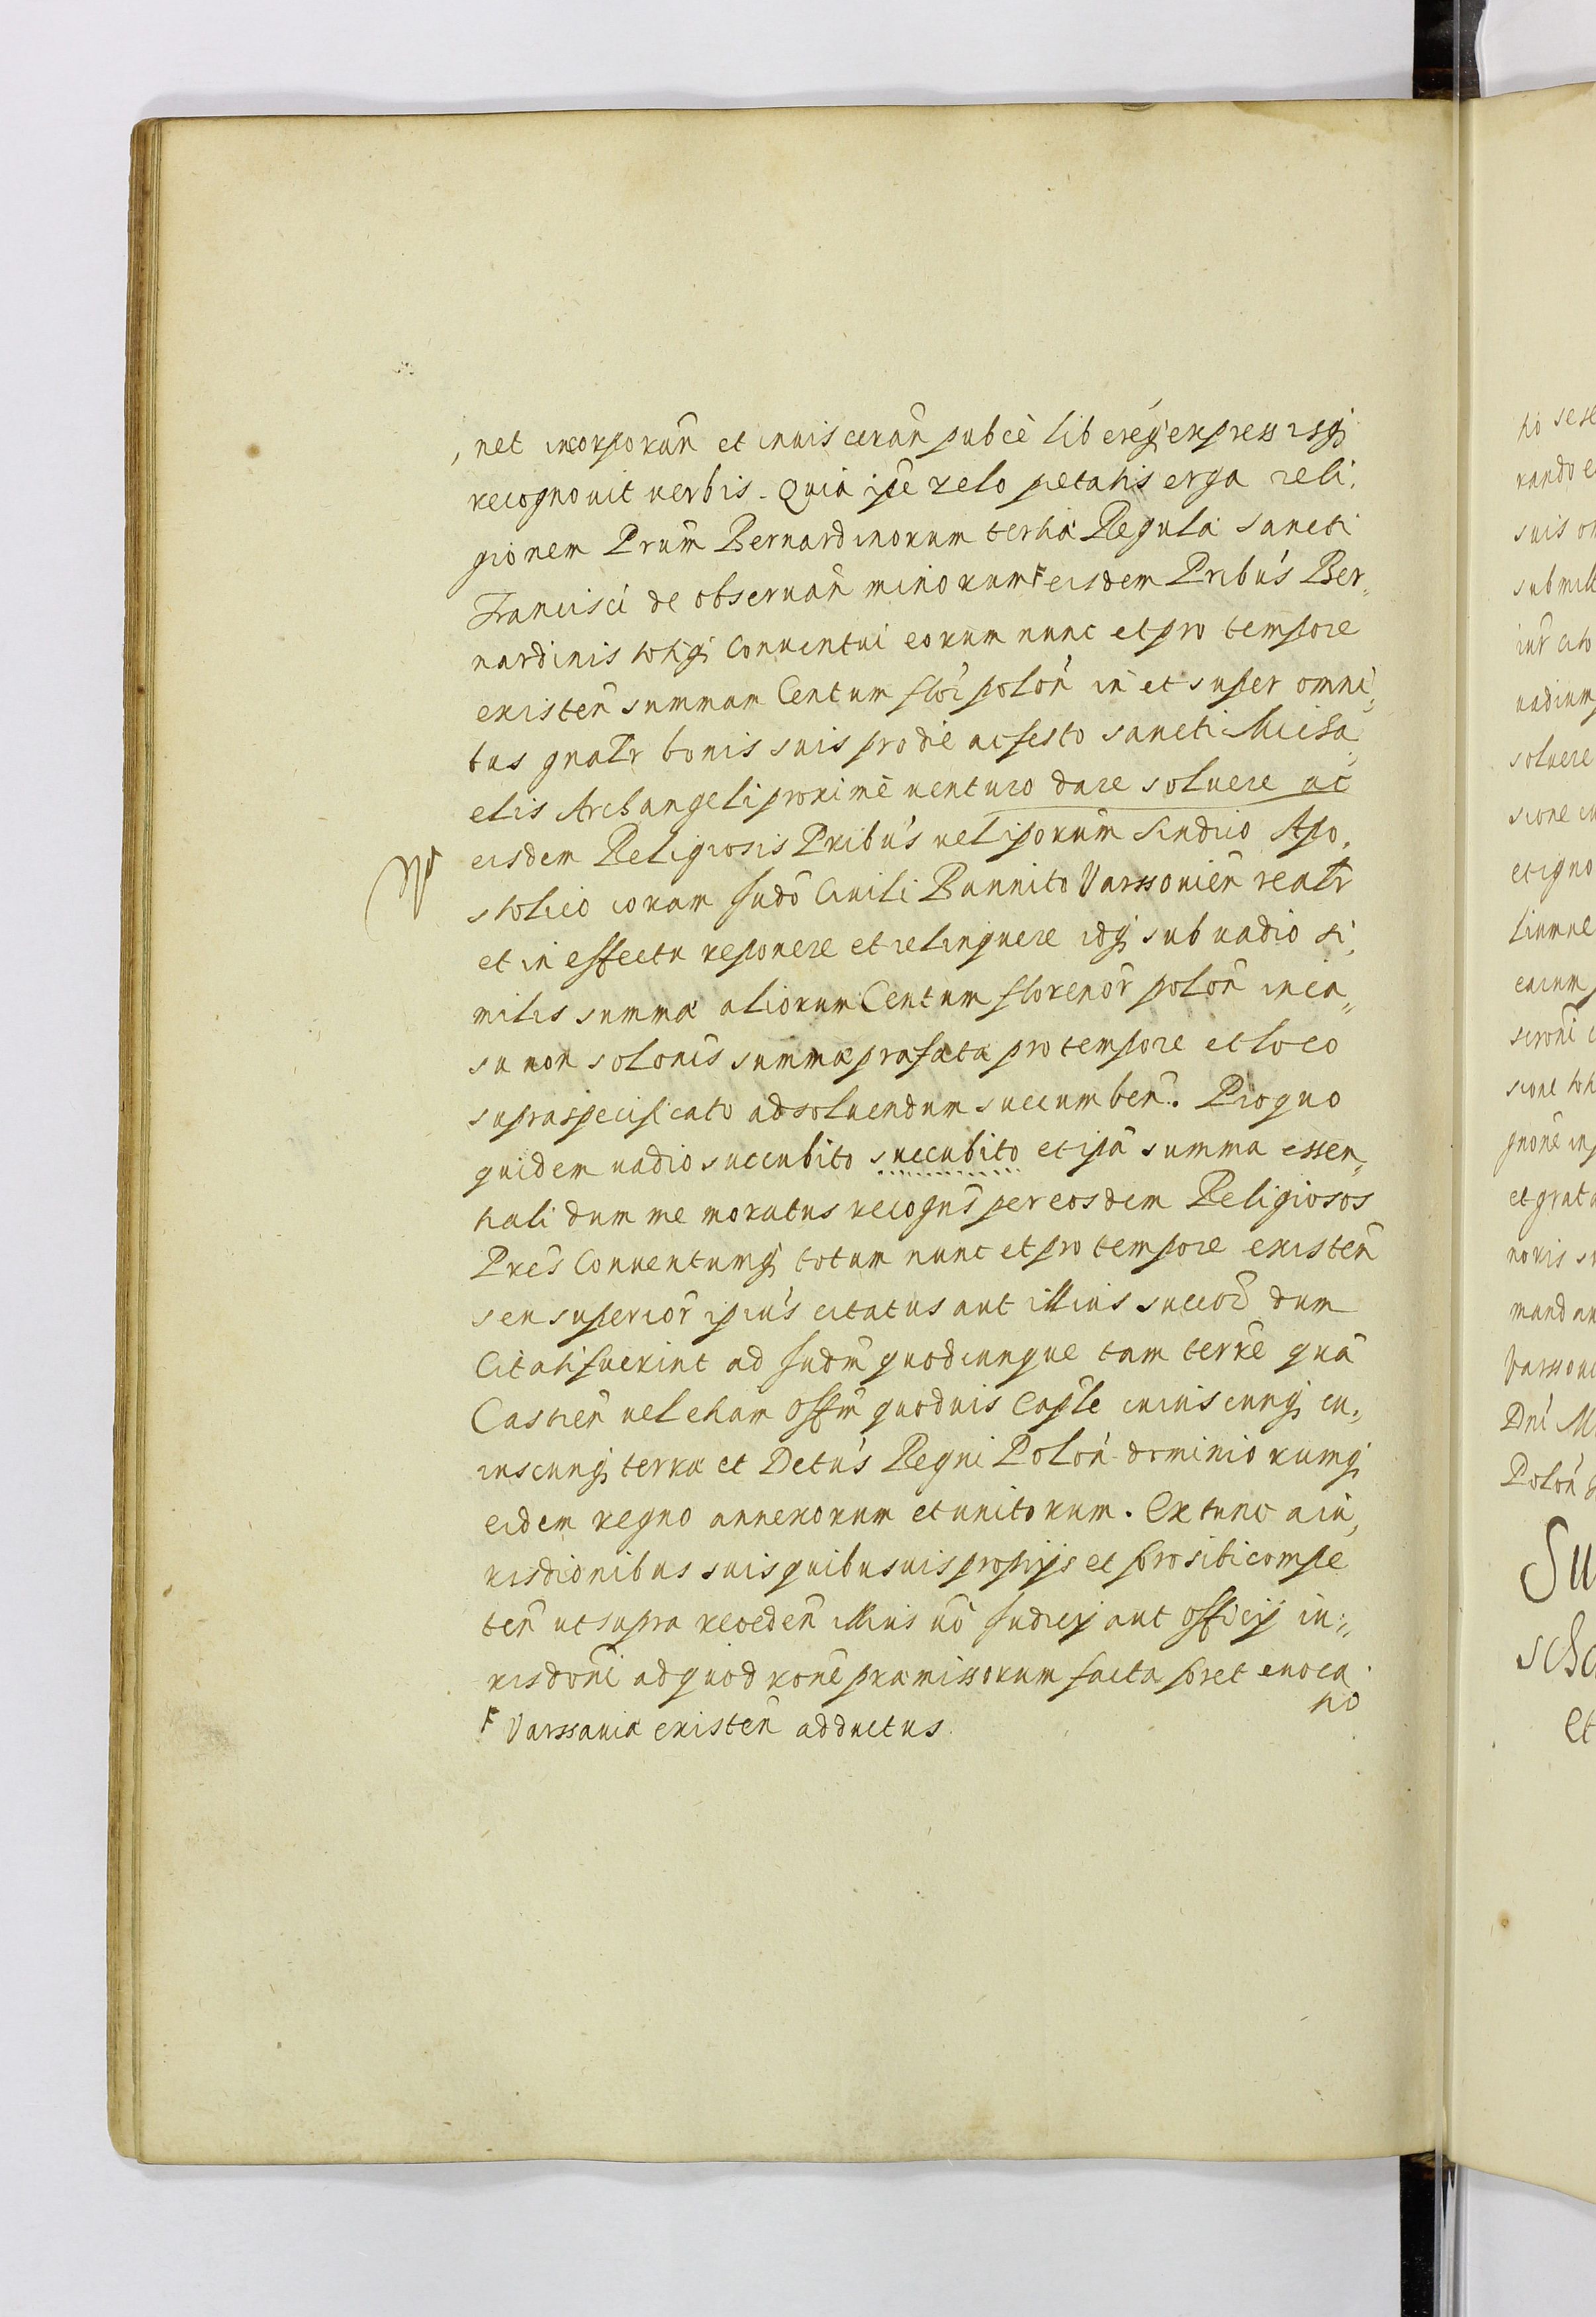 , net incorporan̄ et inuisceran̄ pubcè liberéq; expressisq;
recognouit uerbis. Quia ip̄e zelo pietatis erga reli,
gionem Prum̄ Bernardinorum tertiæ Regulæ Sancti
Francisci de obseruan̄ minorum # eisdem Pribús Ber„
nardinis totiq; Conuentui eorum nunc et pro tempore
existen̄ summam Centum flor̄ polon̄ in et super omni,
bus gnalr̄ bonis suis pro die ac festo Sancti Micha,
elis Archangeli proximè uenturo dare soluere ac
eisdem Religiosis Pribús uel ip̄orum̄ Sindico Apo,
stolico coram Judō Ciuili Bannito Varssouien̄ realr̄
et in effectu reponere et relinquere idq; sub uadio si,
milis summæ aliorum Centum florenor̄ polon̄ in ca„
su non solonis̄ summæ præfatæ pro tempore et loco
supraspecificato ad soluendum succumben̄. Pro quo
quidem uadio succubito succubito et ip̄a summa essen„
tiali dum me moratus recogns̄ per eosdem Religiosos
Pres̄ Conuentumq; totum nunc et pro tempore existen̄
seu superior̄ ipiús citatus aut illius succor̄ dum
Citati fuerint ad Judm̄ quodcunque tam terrē quā
Castren̄ uel etiam Offm̄ quoduis Cap̄le cuiuscunq; cu,
iuscunq; terræ et Detús Regni Polon̄ dominiorumq;
eidem regno annexorum et unitorum. Ex tunc a iu,
risdionibus suis quibusuis proprijs et foro sibi compe
ten̄ ut supra receden̄ illius uō Judicij aut Officij iu„
risdonī ad quod ronē præmissorum facta foret euoca
tio
# Varssauiæ existen̄ adductus